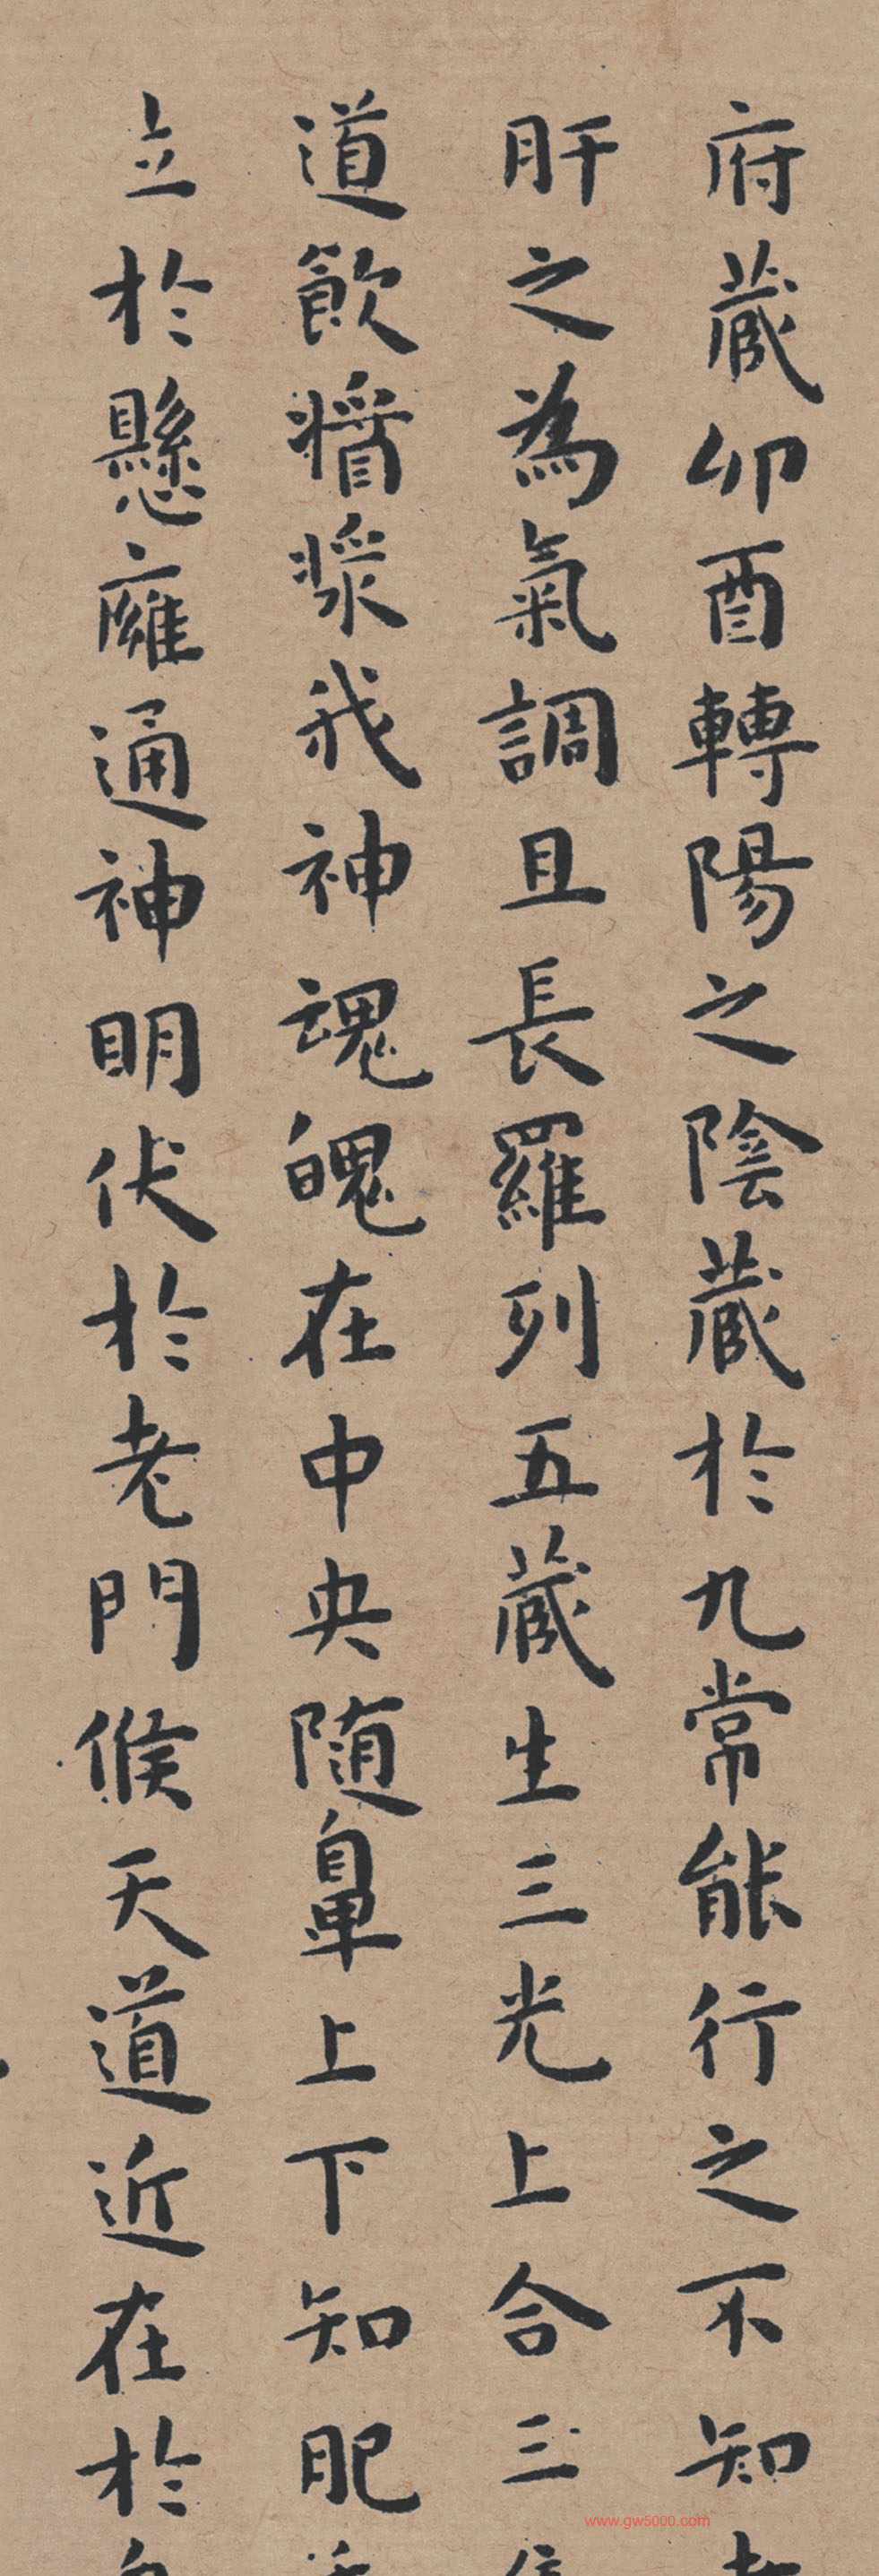 府藏卯酉轉陽之陰藏於九常能行之不知
肝之為氣調且長羅列五藏生三光上合三
道飲醬漿我神魂魄在中央随鼻上下知肥
立於懸廱通神明伏於老門候天道近在於
www.gw5000.com